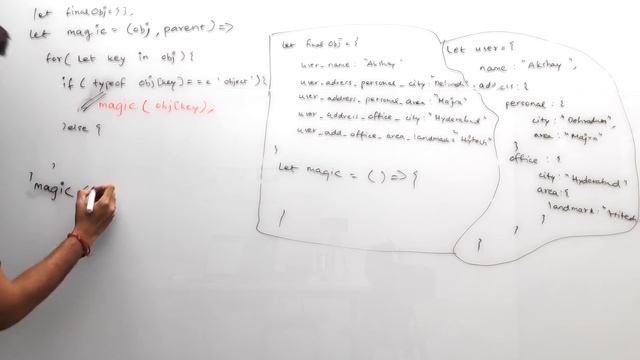 let finalObj = {};
let magic = (obj, parent) =>
for( let key in obj ) {
if ( typeof obj[key] === 'object') {
magic ( obj[key],
}else {
}
}
magic (
let finalObj = {
user_name : "Akshay"
user_adress_personal_city :
user_address_personal_area : "Majra"
user_address_office_city : "Hyderabad"
user_add_office_area_landmark "Hitech"
}
let magic = () => {
}
let user = {
name : "Akshay",
personal : {
city : "Dehradun",
area : "Majra"
}
office : {
city : "Hyderabad"
area : {
landmark : "Hitech
}
}
}